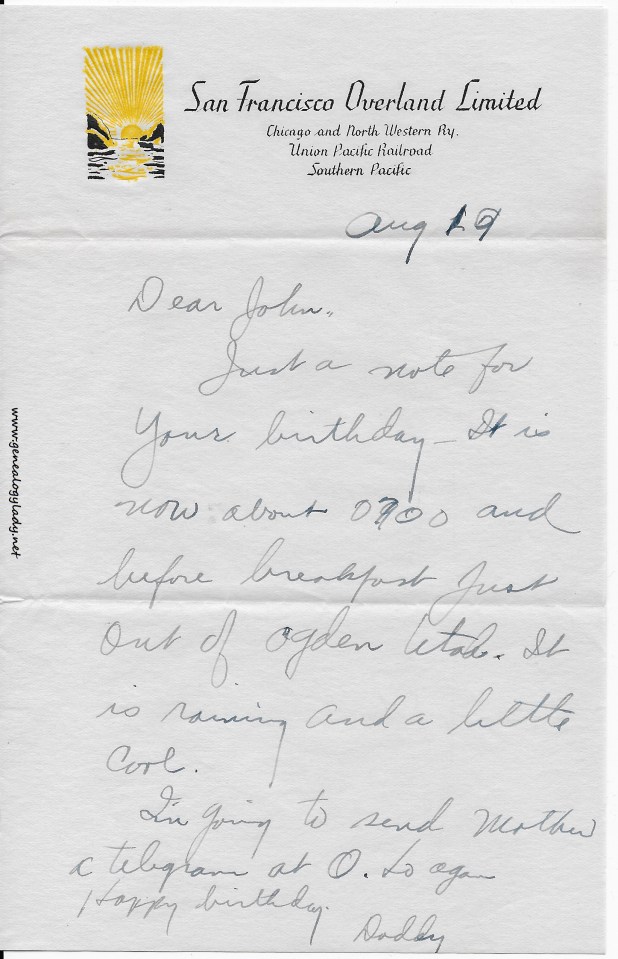 San Francisco Overland Limited
Chicago and North Western Ry.
Union Pacific Railroad
Southern Pacific
Aug 19
Dear John,
Just a note for
Your birthday – It is
now about 0700 and
before breakfast Just
Out of Ogden Utah. It
is raining and a little
Cool.
I'm going to send Mother
a telegram at
Happy birthday.
Daddy
www.genealogylady.net